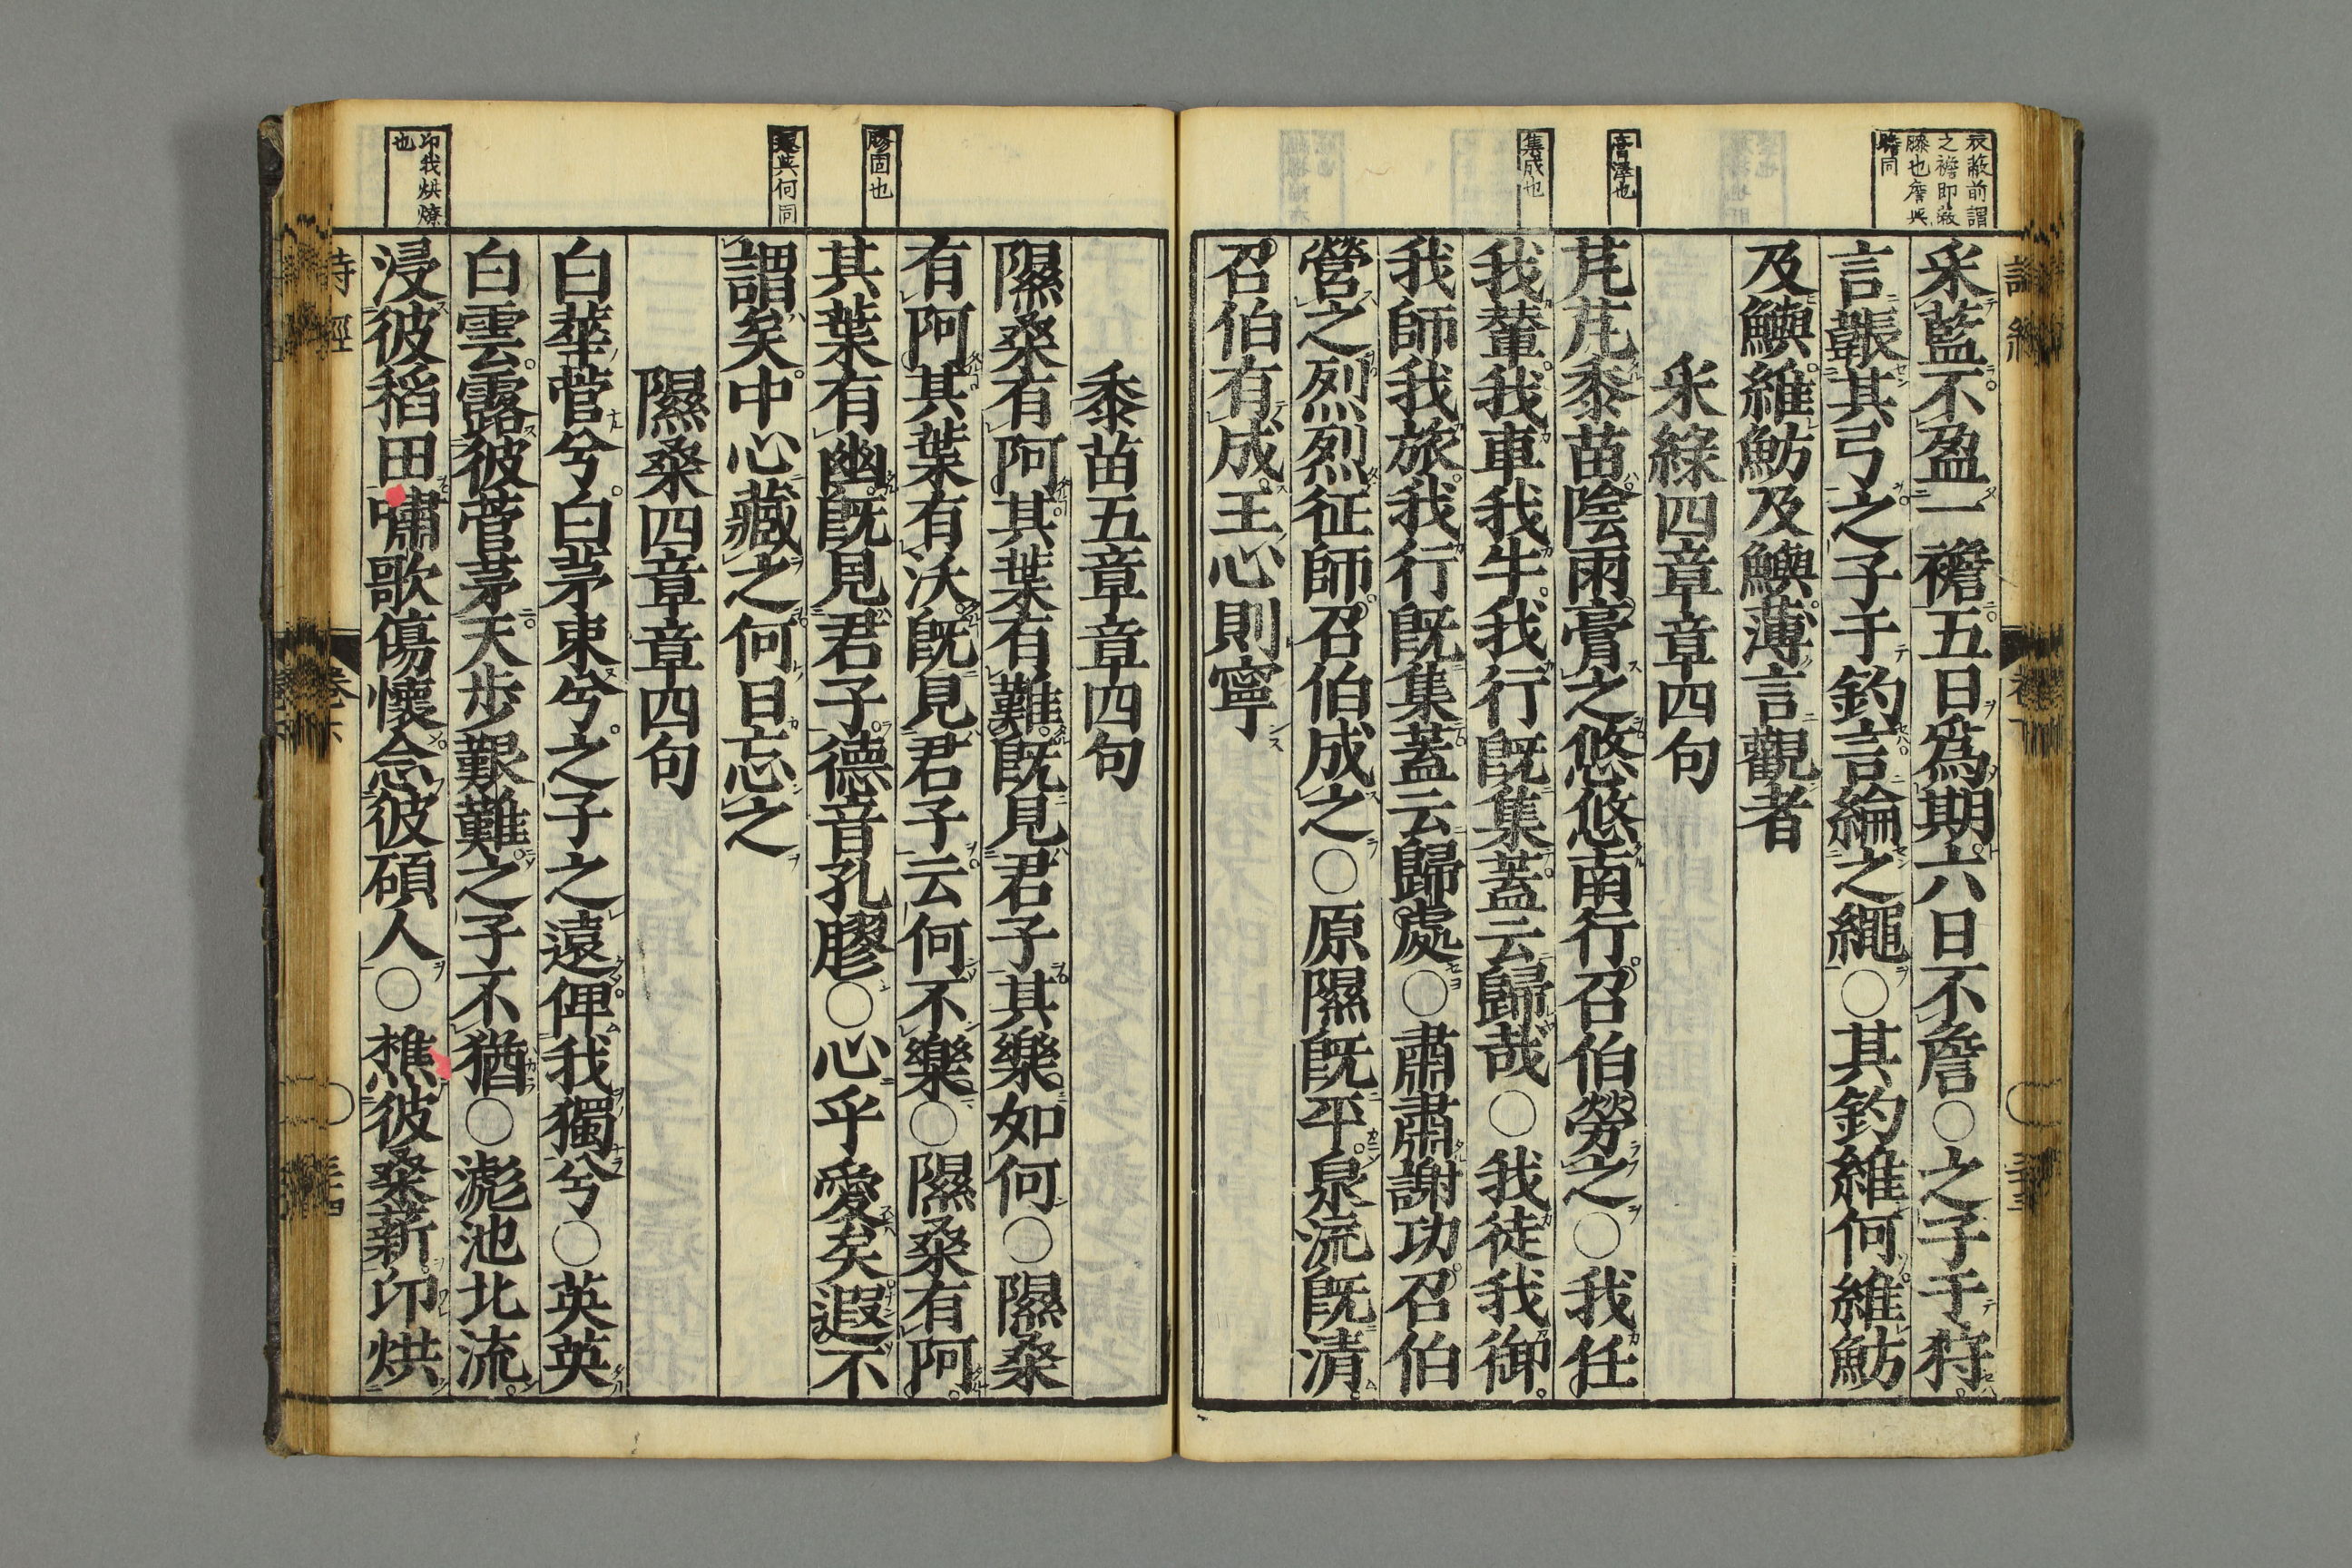 衣蔽前謂
之襜即蔽
膝也詹與
瞻同
膏澤也
集成也
采藍不盈一襜五日爲期六日不詹○之子于狩
言韔其弓之子于釣言綸之繩○其釣維何維魴
及鱮維魴及鱮薄言觀者
采綠四章章四句
芃芃黍苗陰雨膏之悠悠南行召伯勞之○我任
我輦我車我牛我行既集蓋云歸哉○我徒我御
我師我旅我行既集蓋云歸處○肅肅謝功召伯
營之烈烈征師召伯成之○原隰既平泉流既清
召伯有成王心則寧
膠固也
遐與何同
卬我烘燎
也
黍苗五章章四句
隰桑有阿其葉有難既見君子其樂如何○隰桑
有阿其葉有沃既見君子云何不樂○隰桑有阿
其葉有幽既見君子德音孔膠○心乎愛矣遐不
謂矣中心藏之何日忘之
隰桑四章章四句
白華菅兮白茅束兮之子之遠俾我獨兮○英英
白雲露彼菅茅天步艱難之子不猶○滮池北流
浸彼稻田嘯歌傷懷念彼碩人○樵彼桑薪卬烘
詩經